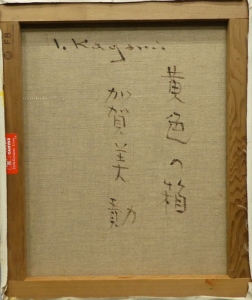 I. Kagami
黄色の箱
加賀美 勣
F8